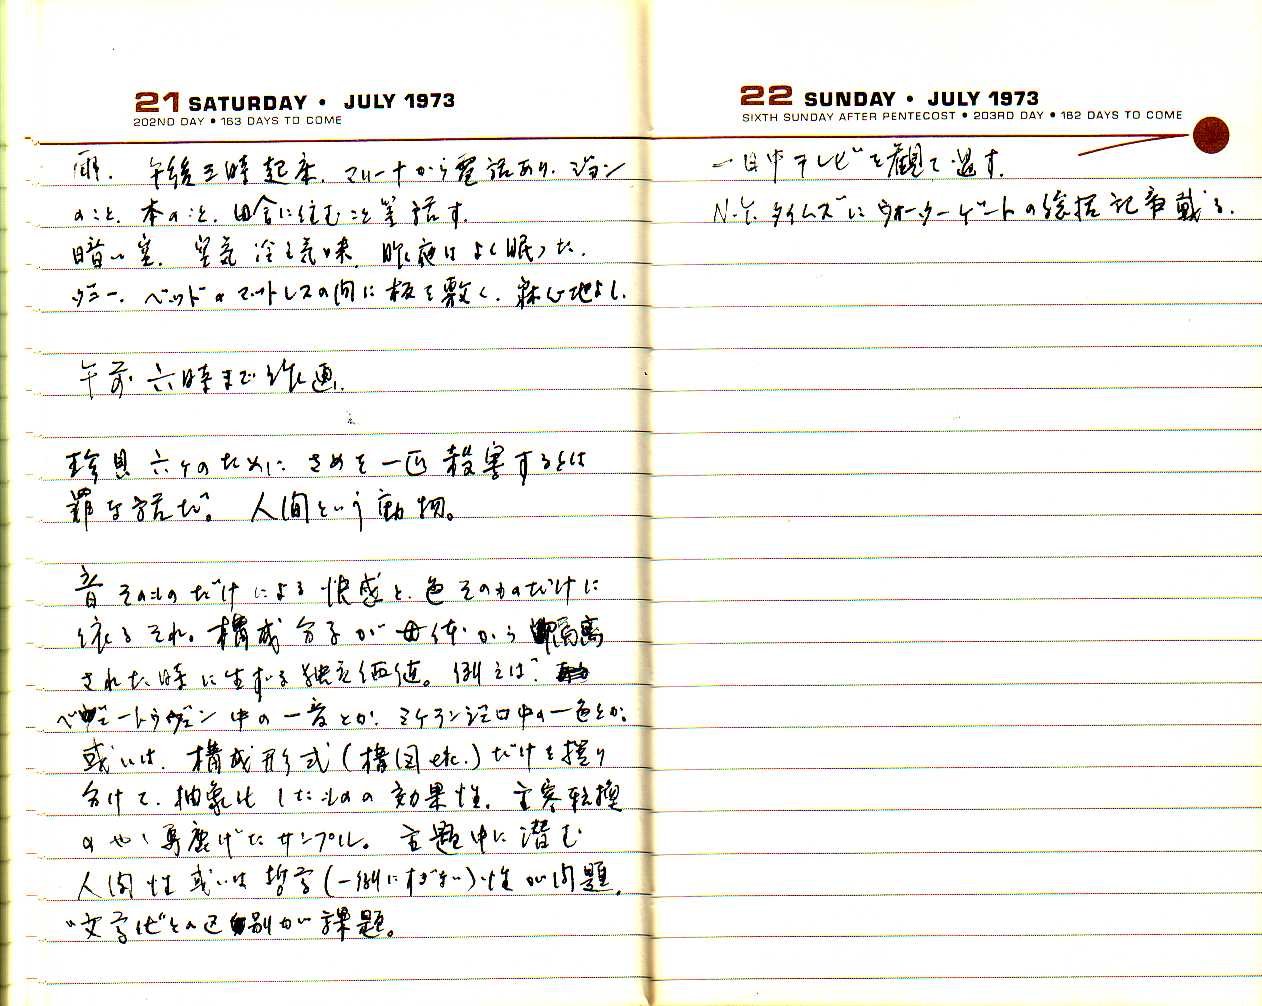 21 SATURDAY • JULY 1973
202ND DAY • 163 DAYS TO COME
雨. 午後三時起床. マリーナから電話あり. ジョン
のこと、本のこと、田舎に住むこと等話す.
暗い空. 空気冷え気味. 昨夜はよく眠った.
ベッドのマットレスの間に板を敷く. 寝心地よし.
午前六時まで作画.
珍貝六ヶのために さめを一匹殺害するとは
罪な話だ。 人間という動物。
音そのものだけによる快感と、色そのものだけに
依るそれ。構成分子が母体から隔離
された時に生ずる独立価値。例えば
ベートーヴェン中の一音とか、ミケランジェロ中の一色とか。
或いは、構成形式(構図etc.)だけを撰り
分けて、抽象化したものの効果性. 主客転換
のやゝ馬鹿げたサンプル。 主題中に潜む
人間性或いは哲学(一例にすぎない)性が問題.
"文学化"との区別が課題。
22 SUNDAY • JULY 1973
SIXTH SUNDAY AFTER PENTECOST • 203RD DAY • 162 DAYS TO COME
一日中テレビを観て過す.
N.Y.タイムズにウォーターゲートの総括記事載る.